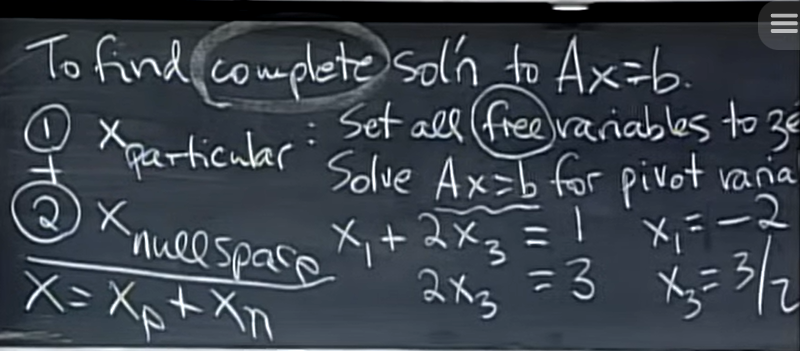 To find complete sol'n to Ax=b.
① x particular : Set all free variables to ze
+ Solve Ax=b for pivot varia
② x nullspace x₁ + 2x₃ = 1 x₁ = -2
x = xp + xn 2x₃ = 3 x₃ = 3/2